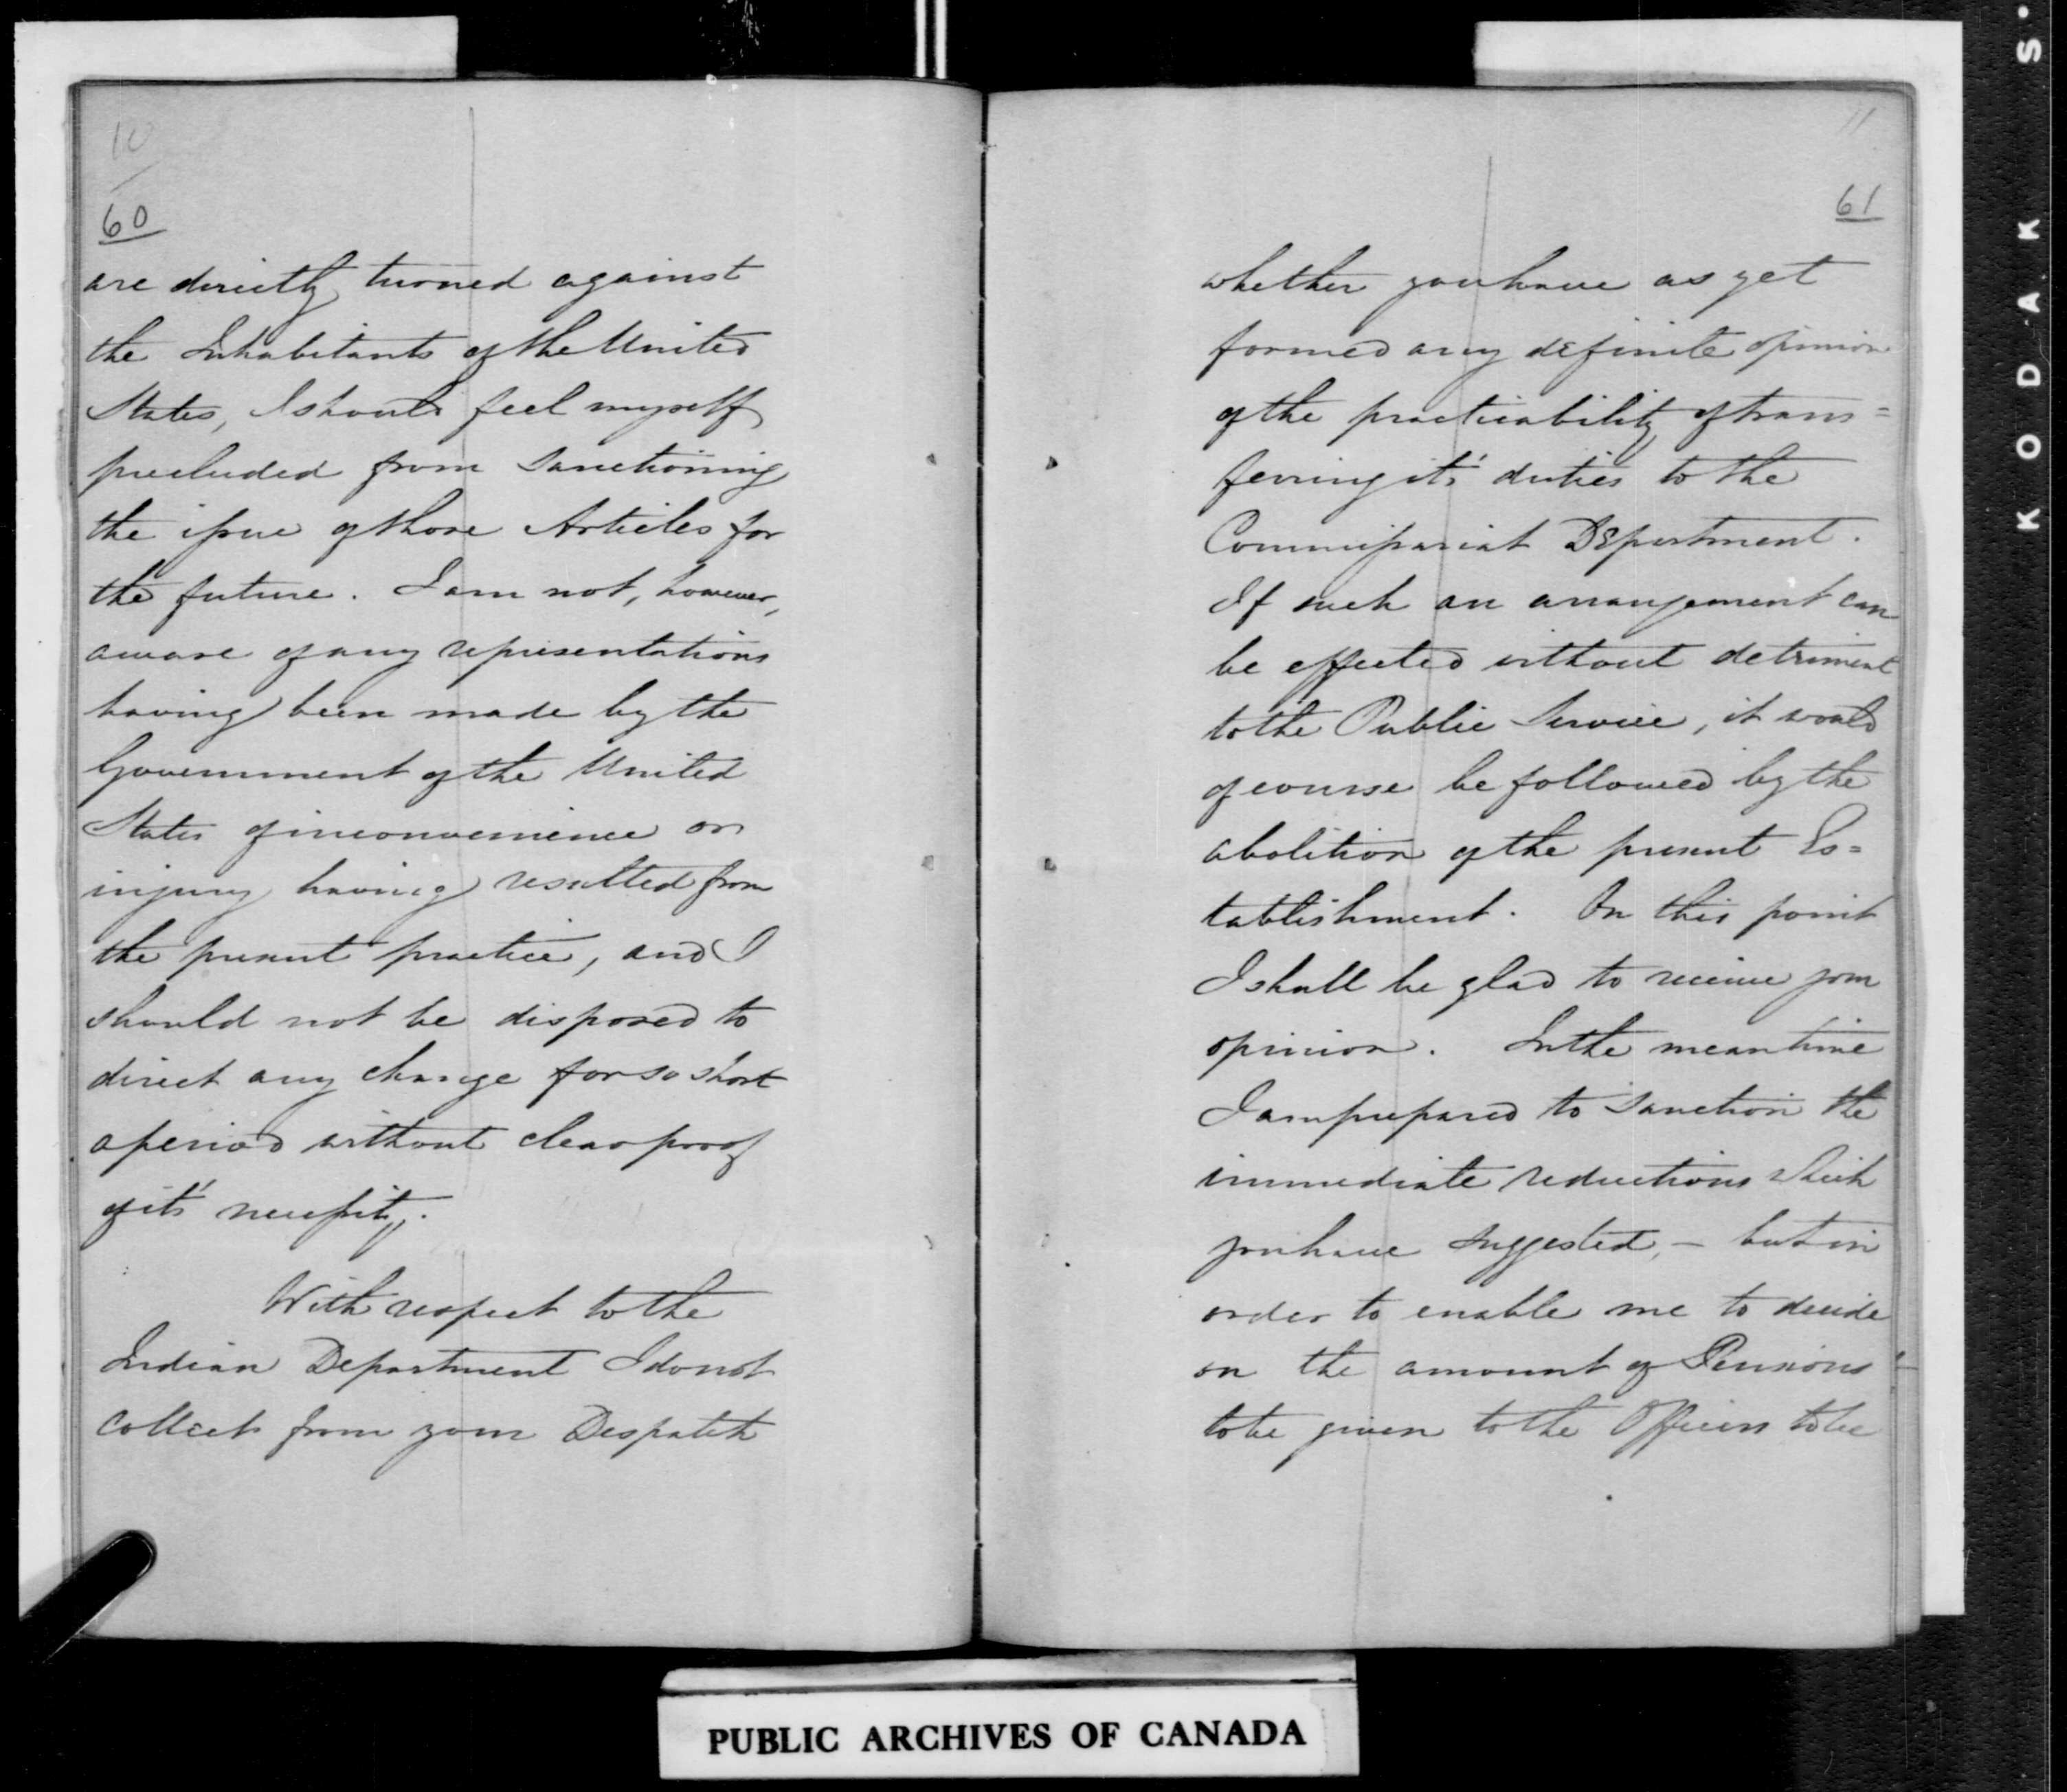 10
60
are directly turned against
the Inhabitants of the United
States, I should feel myself
precluded from sanctioning
the issue of those Articles for
the future. I am not, however,
aware of any representations
having been made by the
Government of the United
States of inconvenience or
injury having resulted from
the present practice, and I
should not be disposed to
direct any change for so short
a period without clear proof
of it's necessity.
With respect to the
Indian Department I do not
collect from your Despatch
11
61
whether you have as yet
formed any definite opinion
of the practicability of trans=
ferring it's duties to the
Commissariat Department.
If such an arrangement can
be effected without detriment
to the Public Service, it would
of course be followed by the
abolition of the present Es=
tablishment. On this point
I shall be glad to receive your
opinion. In the mean time
I am prepared to sanction the
immediate reductions which
you have suggested, – but in
order to enable me to decide
on the amount of Pensions
to be given to the Officers to be
PUBLIC ARCHIVES OF CANADA
KODAK S.